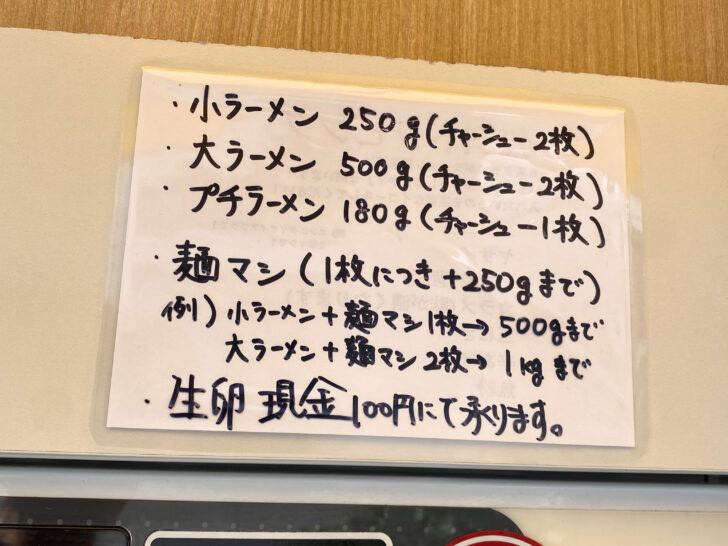 ・小ラーメン 250g(チャーシュー2枚)
・大ラーメン 500g(チャーシュー2枚)
・プチラーメン 180g(チャーシュー1枚)
・麺マシ(1枚につき+250gまで)
例)小ラーメン+麺マシ1枚→500gまで
大ラーメン+麺マシ2枚→1kgまで
・生卵 現金100円にて承ります。